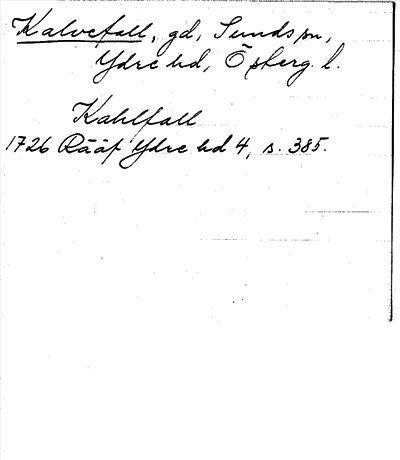 Kalvefall, gd, Sunds sn,
Ydre hd, Östergl.
Kahlfall
1726 Rääf Ydre hd 4, s. 385.